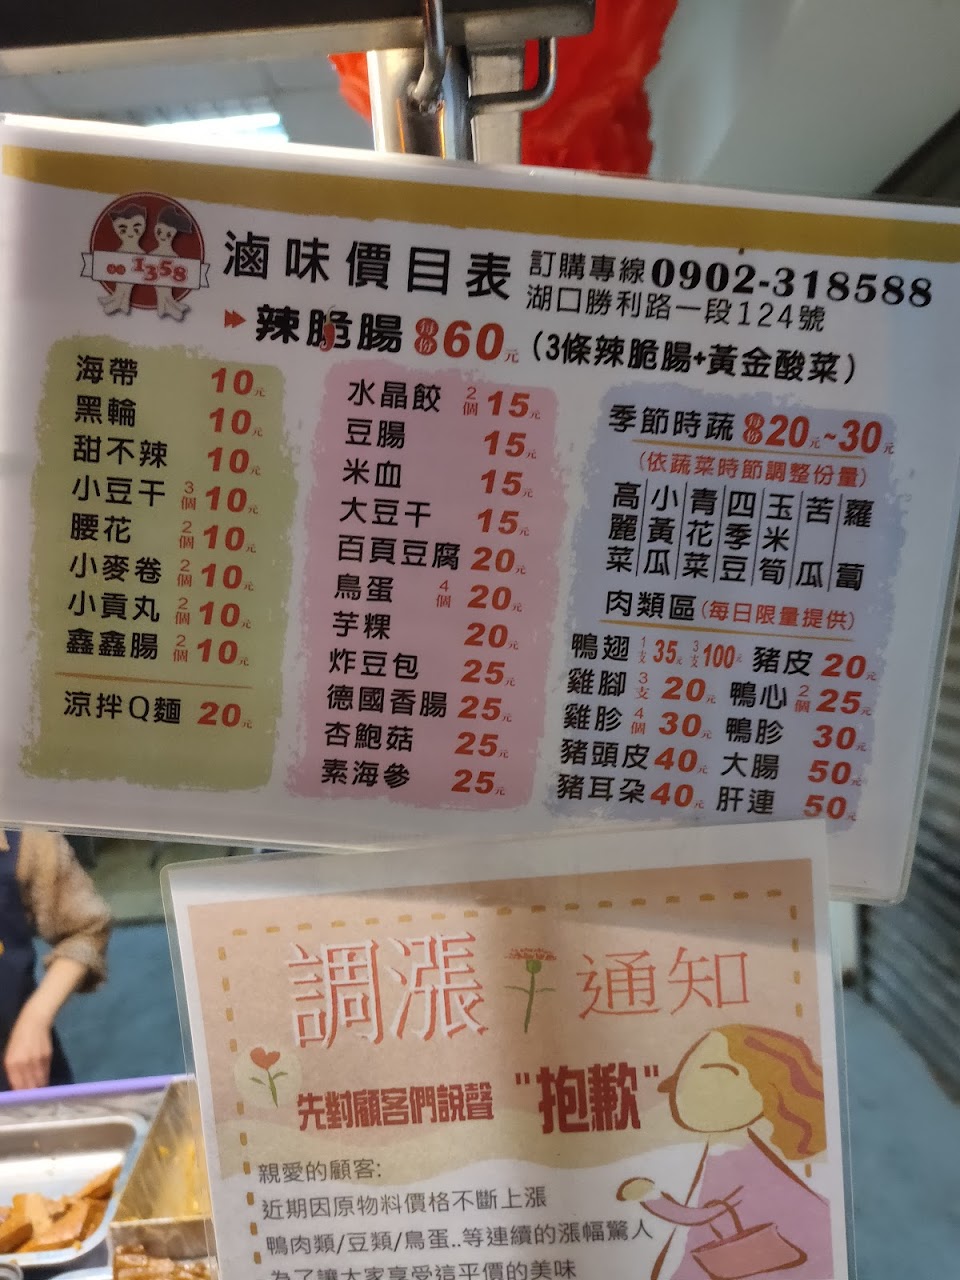 1358
滷味價目表
訂購專線0902-318588
湖口勝利路一段124號
辣脆腸 每份60元 (3條辣脆腸+黃金酸菜)
海帶 10元
黑輪 10元
甜不辣 10元
小豆干 3個 10元
腰花 2個 10元
小麥卷 2個 10元
小貢丸 2個 10元
鑫鑫腸 2個 10元
涼拌Q麵 20元
水晶餃 2個 15元
豆腸 15元
米血 15元
大豆干 15元
百頁豆腐 20元
鳥蛋 4個 20元
芋粿 20元
炸豆包 25元
德國香腸 25元
杏鮑菇 25元
素海參 25元
季節時蔬 每份20元~30元
(依蔬菜時節調整份量)
高麗菜
小黃瓜
青花菜
四季豆
玉米筍
苦瓜
蘿蔔
肉類區(每日限量提供)
鴨翅 1支35元 3支100元 豬皮 20元
雞腳 3支 20元 鴨心 2個 25元
雞胗 4個 30元 鴨胗 30元
豬頭皮 40元 大腸 50元
豬耳朵 40元 肝連 50元
調漲通知
先對顧客們說聲"抱歉"
親愛的顧客:
近期因原物料價格不斷上漲
鴨肉類/豆類/鳥蛋..等連續的漲幅驚人
為了讓大家享受這平價的美味